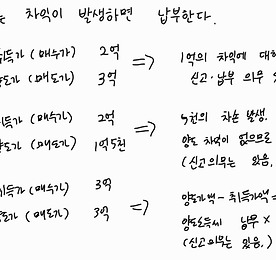 차익이 발생하면 납부한다.
취득가 (매수가) 2억 ⇒ 1억의 차익에 대해
양도가 (매도가) 3억 신고·납부 의무
취득가 (매수가) 2억 ⇒ 5천의 차손 발생.
양도가 (매도가) 1억 5천 양도 차익이 없으므로
(신고의무는 있음.
취득가 (매수가) 3억 ⇒ 양도가액 - 취득가액 =
양도가 (매도가) 3억 양도소득세 납부 ×
(신고의무는 있음.)